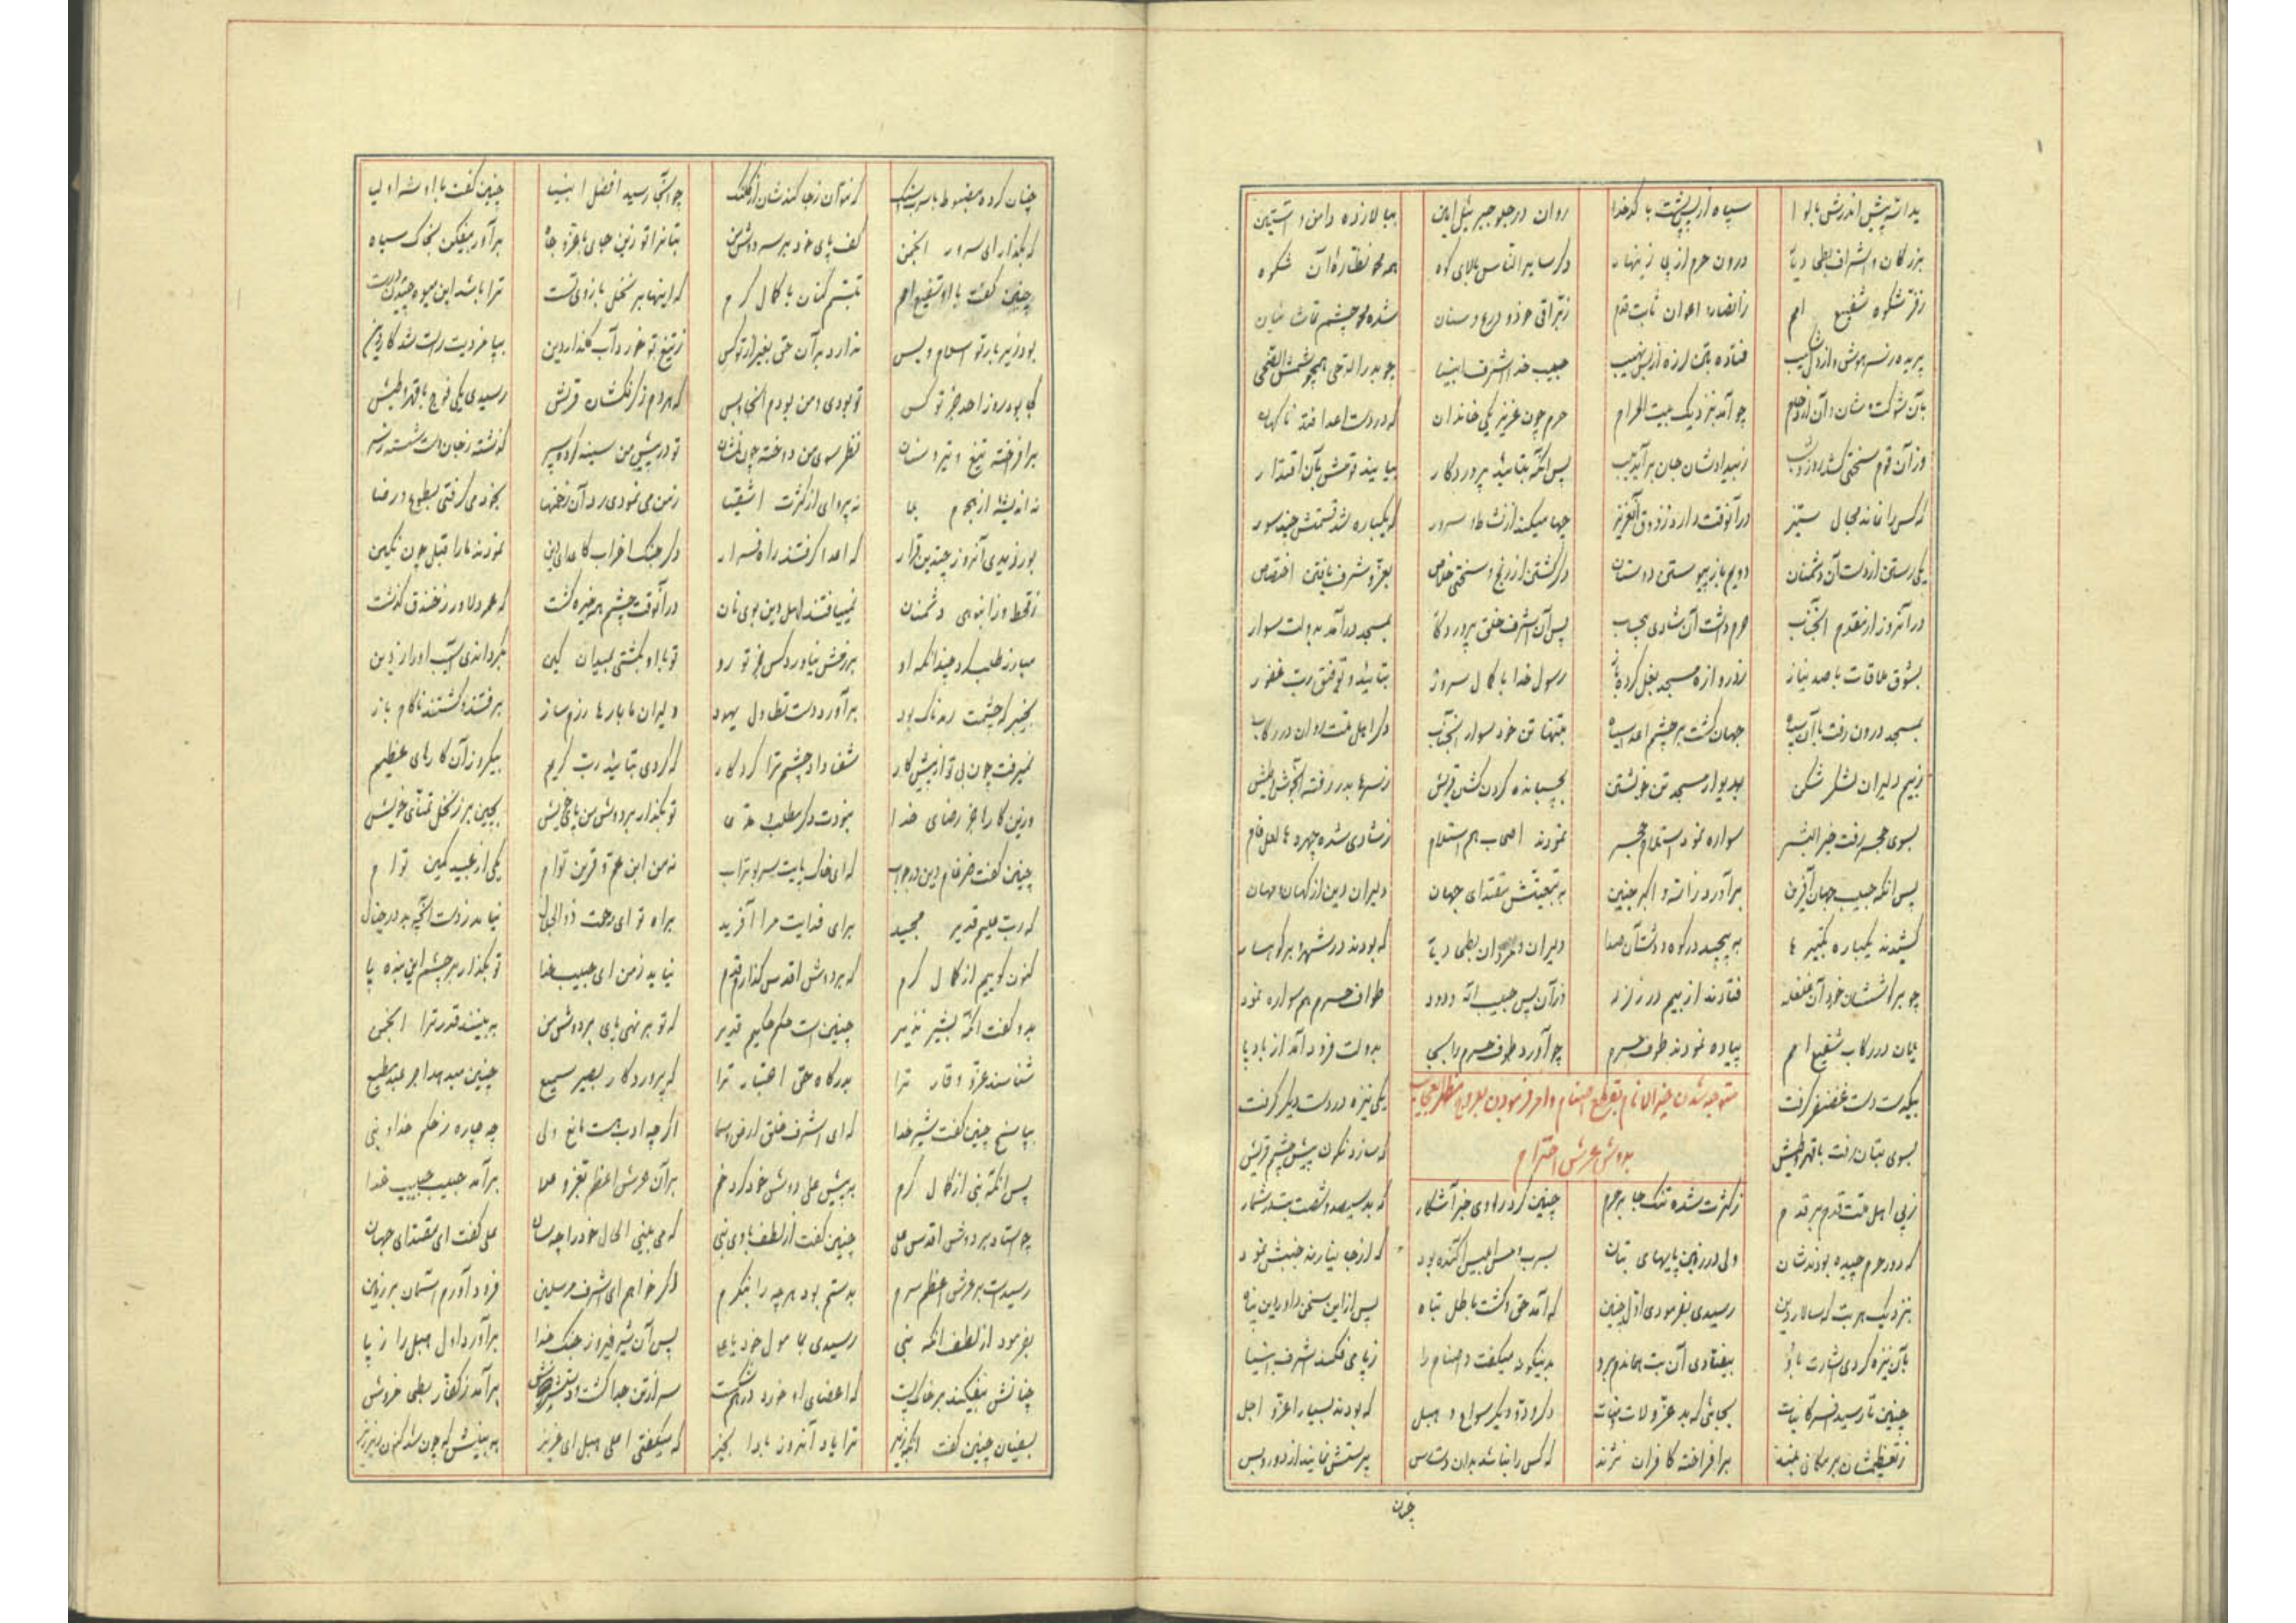 سپاه از پس پشت با کدخدا روان در جلو جبرئیل امین ببالا زده دامن و آستین
بزرگان و اشراف بطحی دیار درون حرم از پی زینهار دگر سایر الناس بالای کوه همه محو نظاره آن شکوه
ز فر شکوه شفیع امم ز انصار و اعوان ثابت قدم ز براقی خود و درع و سنان شده محو چشم تماشائیان
فتاده بتن لرزه از بس نهیب حبیب خدا اشرف انبیا چو بدر الدجی همچو شمس الضحی
بآن شوکت و شان و آن چو آمد بنزدیک بیت الحرام حرم چون عزیز یکی خاندان که در دست اعدا فتد ناگهان
وز آن قوم سختی کشد روز و شب ز بیدادشان جان برآید بلب پس آنگه بتائید پروردگار بیابند قومش بآن اقتدار
که کس را نماند مجال ستیز در آنوقت دارد ز ذوق آن عزیز چها میکند از نشاط و سرور که یکباره شد قسمتش چند سور
یکی رستن از دست آن دشمنان دویم باز پیوستن دوستان دگر گشتن از رنج و سختی خلاص بعز و شرف یافتن اختصاص
در آنروز از مقدم آنجناب حرم داشت آن شادی بیحساب پس آن اشرف خلق پروردگار بمسجد درآمد بدولت سوار
بشوق ملاقات با صد نیاز ز دروازه مسجد بغل کرده باز رسول خدا با کمال سرور بتائید و توفیق رب غفور
بمسجد درون رفت با آن سپاه جهان گشت بر چشم اعدا سیاه بتنها تن خود سوار آنجناب دگر اهل ملت روان در رکاب
ز بیم دلیران لشکر شکن بدیوار مسجد تن خویشتن بچسبانده گردن کشان قریش ز سرها بدر رفته آنجوش و طیش
بسوی حجر رفت خیر البشر سواره نمود استلام حجر نمودند اصحاب هم استلام ز شادی شده چهره ها لعل فام
پس آنگه حبیب جهان آفرین برآورد الله اکبر چنین به تبعیتش مقتدای جهان دلیران دین از کهان و مهان
کشیدند یکباره تکبیر ها به پیچید در کوه و دشت آن صدا دلیران و گردان بطحی دیار که بودند در شهر و بر کوهسار
چو بر گوششان خورد آن غلغله فتادند از بیم در زلزله وز آن پس حبیب اله ودود طواف حرم هم سواره نمود
یلان در رکاب شفیع امم پیاده نمودند طوف حرم چو آورد طوف حرم را بجای بدولت فرود آمد از بادپای
بیکدست دست غضنفر گرفت یکی نیزه در دست دیگر گرفت
متوجه شدن خیر الانام بقلع اصنام و امر فرمودن بعروج مظهر العجایب
بدوش عرش احترام
بسوی بتان رفت با قهر و طیش که سازد نگون پیش چشم قریش
ز پی اهل ملت قدم بر قدم ز کثرت شده تنگ جا بر حرم چنین کرد راوی خبر آشکار که بد سیصد و شصت بت در شمار
که دور حرم چیده بودندشان ولی در زمین پایهای بتان بسرب و مس کنده بود که از جا نیارند جنبش نمود
بنزدیک هر بت که سالار دین رسیدی بفرمودی اول چنین که آمد حق و گشت باطل تباه پس از این سخن داور دین پناه
بآن نیزه کردی اشارت باو بیفتادی آن بت هماندم برو بدینگونه میگفت و اصنام را ز پا می فکند اشرف انبیا
چنین تا رسید سرکائنات بجائی که بد عزی و لات و منات دگر ود و دیگر سواع و هبل که بودند بسیار با عز و اجل
ز تعظیمشان بر مکانی بلند برافراخته کافران نژند که کس را نباشد بدان دسترس پرستش نمایند از دور و بس
چنان
چنان کرده مضبوط با سرب که نتوان ز جا کندشان از کلنک چو آنجا رسید افضل انبیا چنین گفت با او شه اولیا
که بگذار ای سرور انجمن کف پای خود بر سر دوش من بتان را تو زین جای با عز و جاه برآور بیفکن بخاک سیاه
چنین گفت با او شفیع امم تبسم کنان با کمال کرم که اینها بر نخل بازوی تست ترا باشد این میوه چیدن درست
بود زیر بار تو اسلام و بس ندارد بر آن حق بغیر از تو کس ز تیغ تو خورد آب گلزار دین بپا مردیت راست شد کار دین
کجا بود روز احد جز تو کس تو بودی و من بودم آنجا و بس که هر دم ز گردنکشان قریش رسیدی یکی فوج با قهر و طیش
برافراخته تیغ و تیر و سنان نظر سوی من دوخته چون نشان تو در پیش من سینه کرده سپر گذشته ز جان دست شسته ز سر
نه اندیشه از هجوم بلا نه پروای از کثرت اشقیا ز من می نمودی رد آن زخمها بخود می گرفتی بطوع و رضا
بود آنروز چندین هزار که اعدا گرفتند راه فرار دگر جنگ احزاب کاعدای دین نمودند ما را قبل چون نگین
ز قحط و ز انبوهی دشمنان نمییافتند اهل دین بوی نان در آنوقت چشم همه خیره گشت که عمرو دلاور ز خندق گذشت
مبارز طلب کرد چندانکه او برزمش نیاورد کس جز تو رو تو با او بگشتی بمیدان کین
بخیبر که چشمت رمدناک بود برآورد دست تطاول یهود دلیران ما بارها رزم ساز برفتند و گشتند ناکام باز
نمیرفت چون بی تو از پیش کار شفا داد چشم ترا کردگار که کردی بتائید رب کریم بیکروز آن کارهای عظیم
وزین کارها جز رضای خدا نبودت دگر مطلب و مدعا تو بگذار بر دوش من پای خویش بچین بر ز نخل تمنای خویش
چنین گفت ضرغام دین در جواب که ای خاک پایت سر بوتراب نه من ابن عم و قرین توام یکی از عبید کمین توام
که رب علیم قدیر مجید برای فدایت مرا آفرید براه تو ای رحمت ذوالجلال نیامد ز دست آنچه بد در خیال
کنون گوییم از کمال کرم که بر دوش اقدس گذارم قدم نیاید ز من ای حبیب خدا تو بگذار بر چشم این بنده پا
بدو گفت آنگه بشیر نذیر چنین است حکم حکیم قدیر که تو بر نهی پای بر دوش من به بینند قدر ترا انجمن
شناسند عز و وقار ترا بدرگاه حق اعتبار ترا که پروردگار بصیر سمیع چنین میدهد اجر عبد مطیع
بپاسخ چنین گفت شیر خدا که ای اشرف خلق ارض و سما اگر چه ادب هست مانع ولی چه چاره ز حکم خدا و نبی
پس آنگه نبی از کمال کرم به پیش علی دوش خود کرد خم بر آن عرش اعظم بعز و علا برآمد حبیب حبیب خدا
چو استاد بر دوش اقدس علی چنین گفت از لطف با وی نبی که می بینی الحال خود را چه سان علی گفت ای مقتدای جهان
رسیدست بر عرش اعظم سرم بدستم بود هر چه را بنگرم اگر خواهم ای اشرف مرسلین فرود آورم آسمان بر زمین
بفرمود از لطف آنگه نبی رسیدی بمامول خود یا علی پس آن شیر فیروز جنگ خدا برآورد اول هبل را ز پا
چنانش بیفکند بر خاک پست که اعضای او خورد در هم شکست سر از تن جدا گشت و برآمد ز کفار بطحی خروش
بسفیان چنین گفت ترا یاد آنروز بادا بخیر که میگفتی اعلی هبل ای عزیز